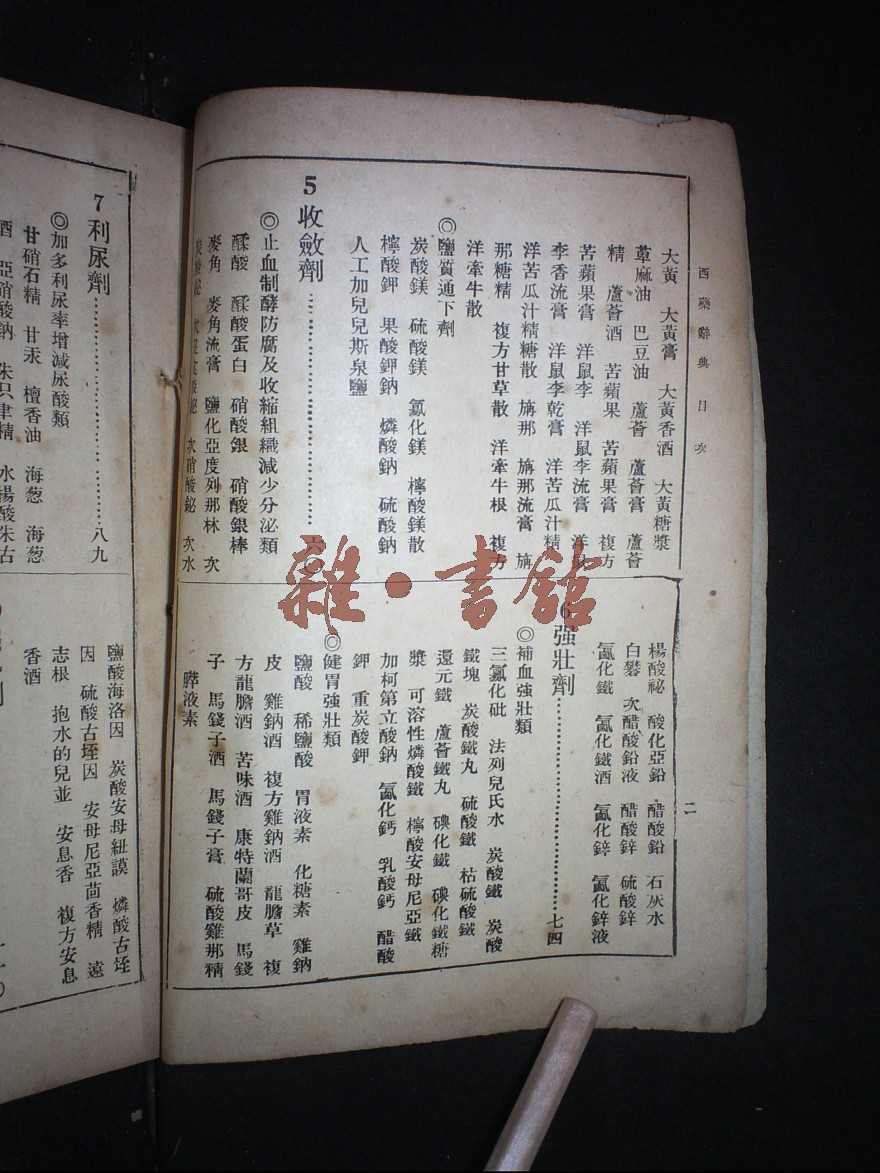 西藥辭典目次
二
大黃 大黃膏 大黃香酒 大黃糖漿
萆麻油 巴豆油 蘆薈 蘆薈膏 蘆薈
精 蘆薈酒 苦蘋果 苦蘋果膏 複方
苦蘋果膏 洋鼠李 洋鼠李流膏 洋鼠
李香流膏 洋鼠李乾膏 洋苦瓜汁精
洋苦瓜汁精糖散 旃那 旃那流膏 旃
那糖精 複方甘草散 洋牽牛根 複方
洋牽牛散
◎鹽質通下劑
炭酸鎂 硫酸鎂 氯化鎂 檸酸鎂散
檸酸鉀 果酸鉀鈉 燐酸鈉 硫酸鈉
人工加兒兒斯泉鹽
5 收斂劑……六〇
◎止血制酵防腐及收縮組織減少分泌類
鞣酸 鞣酸蛋白 硝酸銀 硝酸銀棒
麥角 麥角流膏 鹽化亞度列那林 次
次硝酸鉍 次水
楊酸祕 酸化亞鉛 醋酸鉛 石灰水
白礬 次醋酸鉛液 醋酸鋅 硫酸鋅
氯化鐵 氯化鐵酒 氯化鋅 氯化鋅液
6 强壯劑……七四
◎補血强壯類
三氯化砒 法列兒氏水 炭酸鐵 炭酸
鐵塊 炭酸鐵丸 硫酸鐵 枯硫酸鐵
還元鐵 蘆薈鐵丸 碘化鐵 碘化鐵糖
漿 可溶性燐酸鐵 檸酸安母尼亞鐵
加柯第立酸鈉 氯化鈣 乳酸鈣 醋酸
鉀 重炭酸鉀
◎健胃强壯類
鹽酸 稀鹽酸 胃液素 化糖素 雞鈉
皮 雞鈉酒 複方雞鈉酒 龍膽草 複
方龍膽酒 苦味酒 康特蘭哥皮 馬錢
子 馬錢子酒 馬錢子膏 硫酸雞那精
膵液素
7 利尿劑……八九
◎加多利尿率增減尿酸類
甘硝石精 甘汞 檀香油 海葱 海葱
酒 亞硝酸鈉 朱只聿精 水楊酸朱古
鹽酸海洛因 炭酸安母紐謨 燐酸古垤
因 硫酸古垤因 安母尼亞茴香精 遠
志根 抱水的兒並 安息香 複方安息
香酒
雜·書館